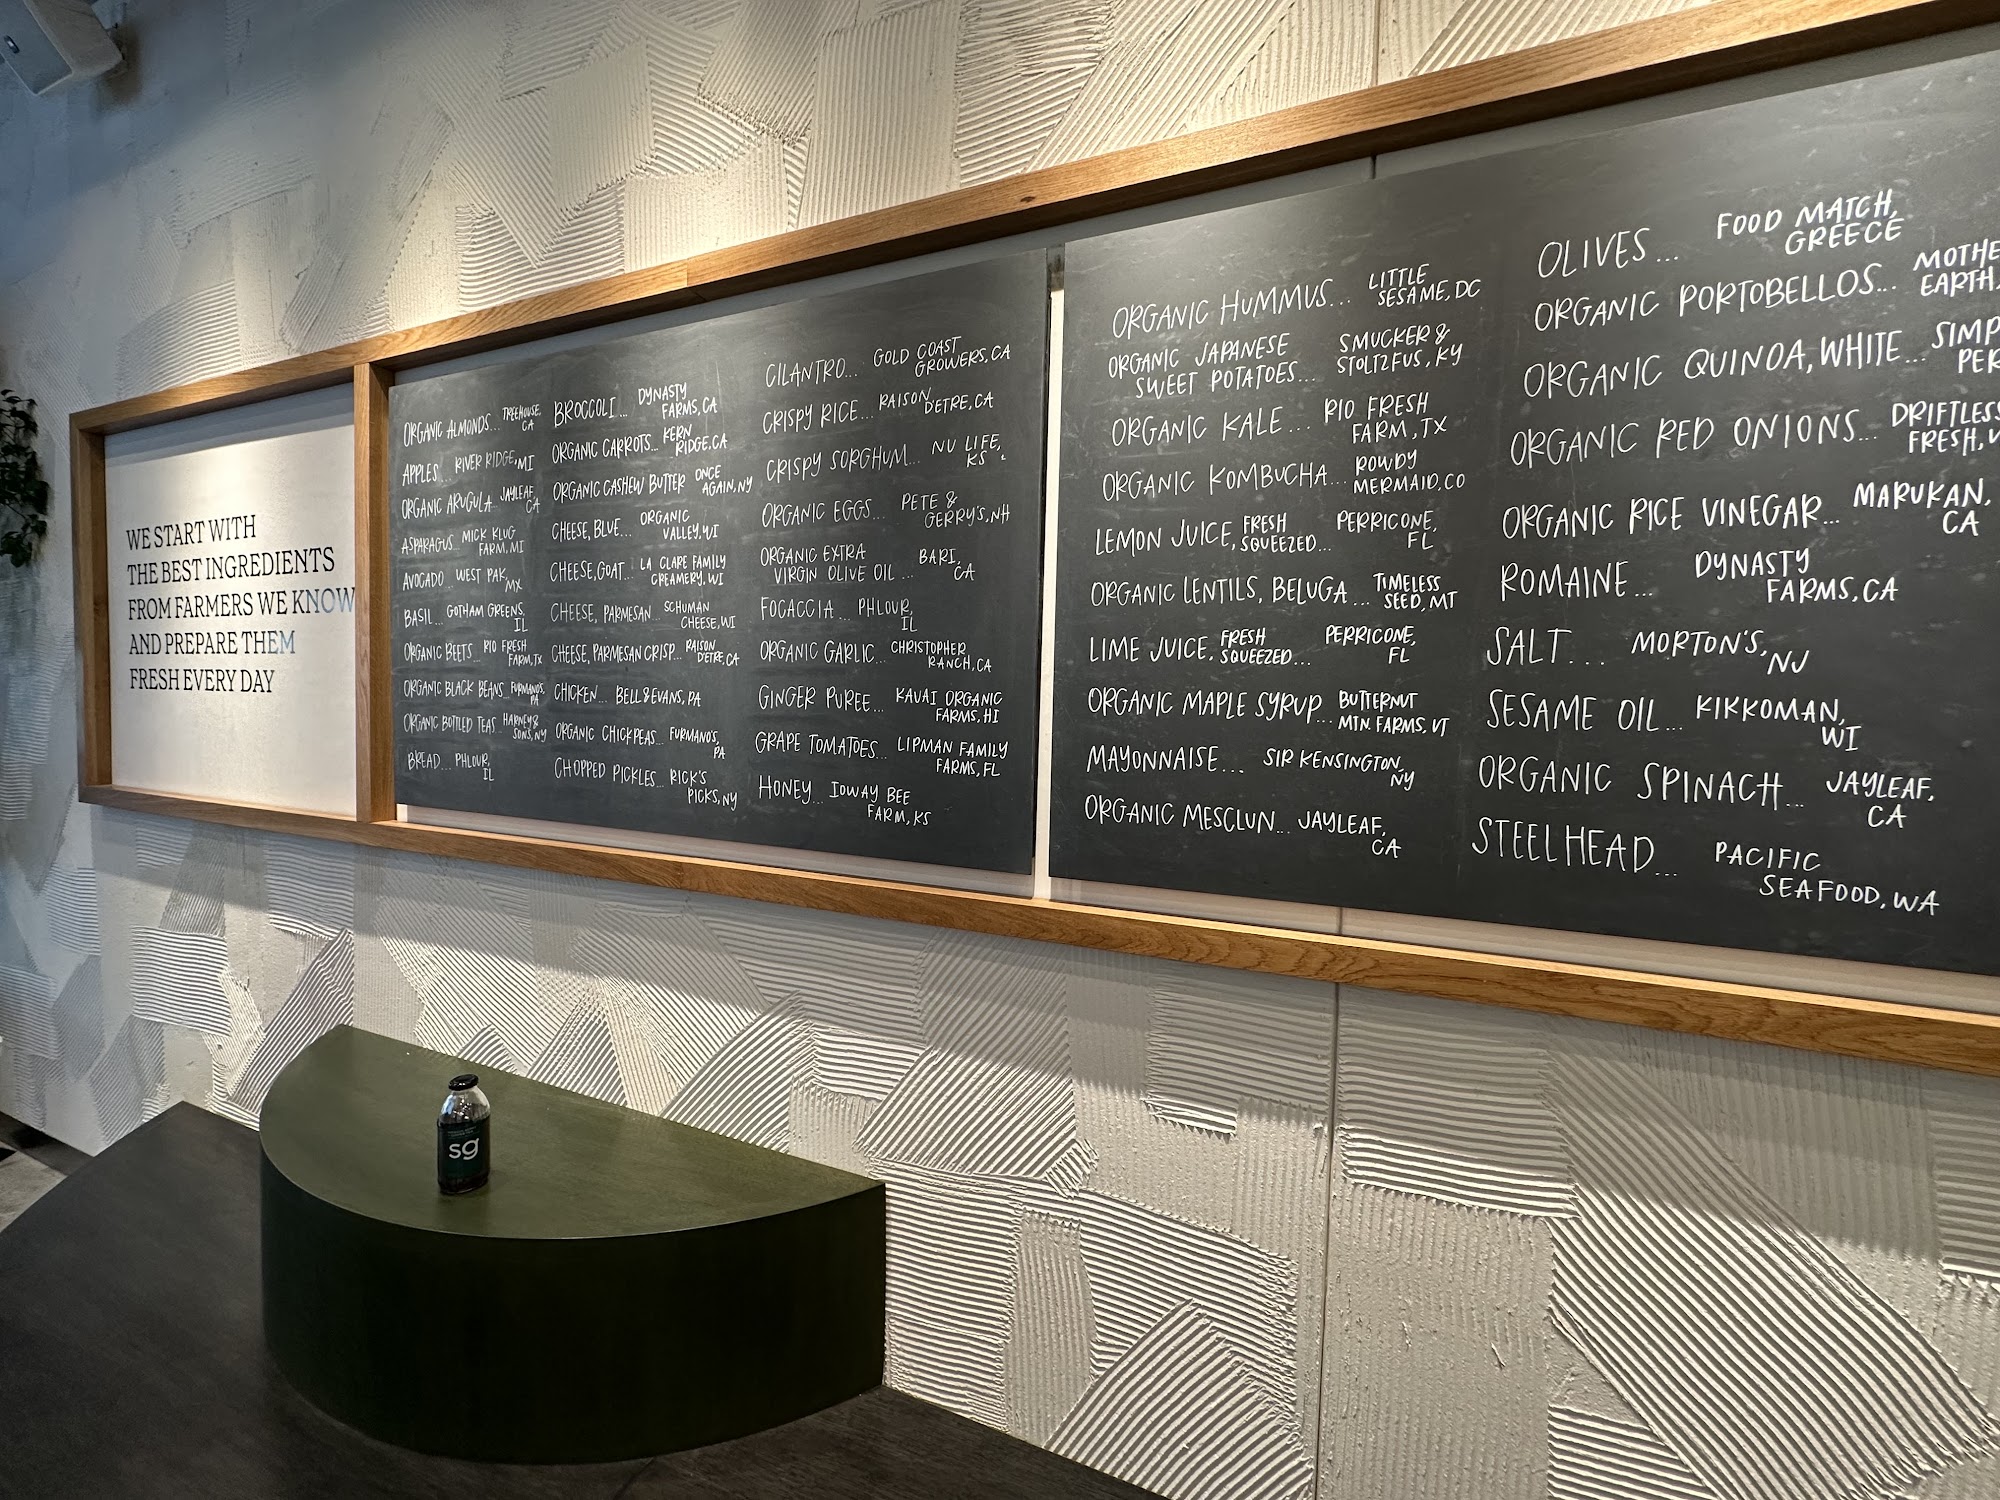 WE START WITH
THE BEST INGREDIENTS
FROM FARMERS WE KNOW
AND PREPARE THEM
FRESH EVERY DAY
ORGANIC ALMONDS... TREEHOUSE,
CA
APPLES... RIVER RIDGE, MI
ORGANIC ARUGULA JAYLEAF,
CA
ASPARAGUS... MICK KLUG
FARM, MI
AVOCADO... WEST PAK,
MX
BASIL... GOTHAM GREENS,
IL
ORGANIC BEETS... RIO FRESH
FARM, TX
ORGANIC BLACK BEANS... FURMANO'S,
PA
ORGANIC BOTTLED TEAS HARNEY &
SONS, NY
BREAD... PHLOUR,
IL
BROCCOLI... DYNASTY
FARMS, CA
ORGANIC CARROTS... KERN
RIDGE, CA
ORGANIC CASHEW BUTTER ONCE
AGAIN, NY
CHEESE, BLUE... ORGANIC
VALLEY, WI
CHEESE, GOAT... LA CLARE FAMILY
CREAMERY, WI
CHEESE, PARMESAN SCHUMAN
CHEESE, WI
CHEESE, PARMESAN CRISP... RAISON
D'ETRE, CA
CHICKEN... BELL & EVANS, PA
ORGANIC CHICKPEAS... FURMANO'S,
PA
CHOPPED PICKLES... RICK'S
PICKS, NY
CILANTRO... GOLD COAST
GROWERS, CA
CRISPY RICE... RAISON
D'ETRE, CA
CRISPY SORGHUM... NU LIFE,
KS
ORGANIC EGGS... PETE &
GERRY'S, NH
ORGANIC EXTRA
VIRGIN OLIVE OIL... BARI,
CA
FOCACCIA... PHLOUR,
IL
ORGANIC GARLIC... CHRISTOPHER
RANCH, CA
GINGER PUREE... KAUAI ORGANIC
FARMS, HI
GRAPE TOMATOES... LIPMAN FAMILY
FARMS, FL
HONEY... IOWAY BEE
FARM, KS
ORGANIC HUMMUS... LITTLE
SESAME, DC
ORGANIC JAPANESE SMUCKER &
SWEET POTATOES... STOLTZFUS, KY
ORGANIC KALE... RIO FRESH
FARM, TX
ORGANIC KOMBUCHA... ROWDY
MERMAID, CO
LEMON JUICE, FRESH SQUEEZED... PERRICONE,
FL
ORGANIC LENTILS, BELUGA... TIMELESS
SEED, MT
LIME JUICE, FRESH SQUEEZED... PERRICONE,
FL
ORGANIC MAPLE SYRUP... BUTTERNUT
MTN. FARMS, VT
MAYONNAISE... SIR KENSINGTON,
NY
ORGANIC MESCLUN... JAYLEAF,
CA
OLIVES... FOOD MATCH,
GREECE
ORGANIC PORTOBELLOS... MOTHE
EARTH,
ORGANIC QUINOA, WHITE... SIMP
PER
ORGANIC RED ONIONS... DRIFTLESS
FRESH,
ORGANIC RICE VINEGAR... MARUKAN,
CA
ROMAINE... DYNASTY
FARMS, CA
SALT... MORTON'S,
NJ
SESAME OIL... KIKKOMAN,
WI
ORGANIC SPINACH... JAYLEAF,
CA
STEELHEAD... PACIFIC
SEAFOOD, WA
sg